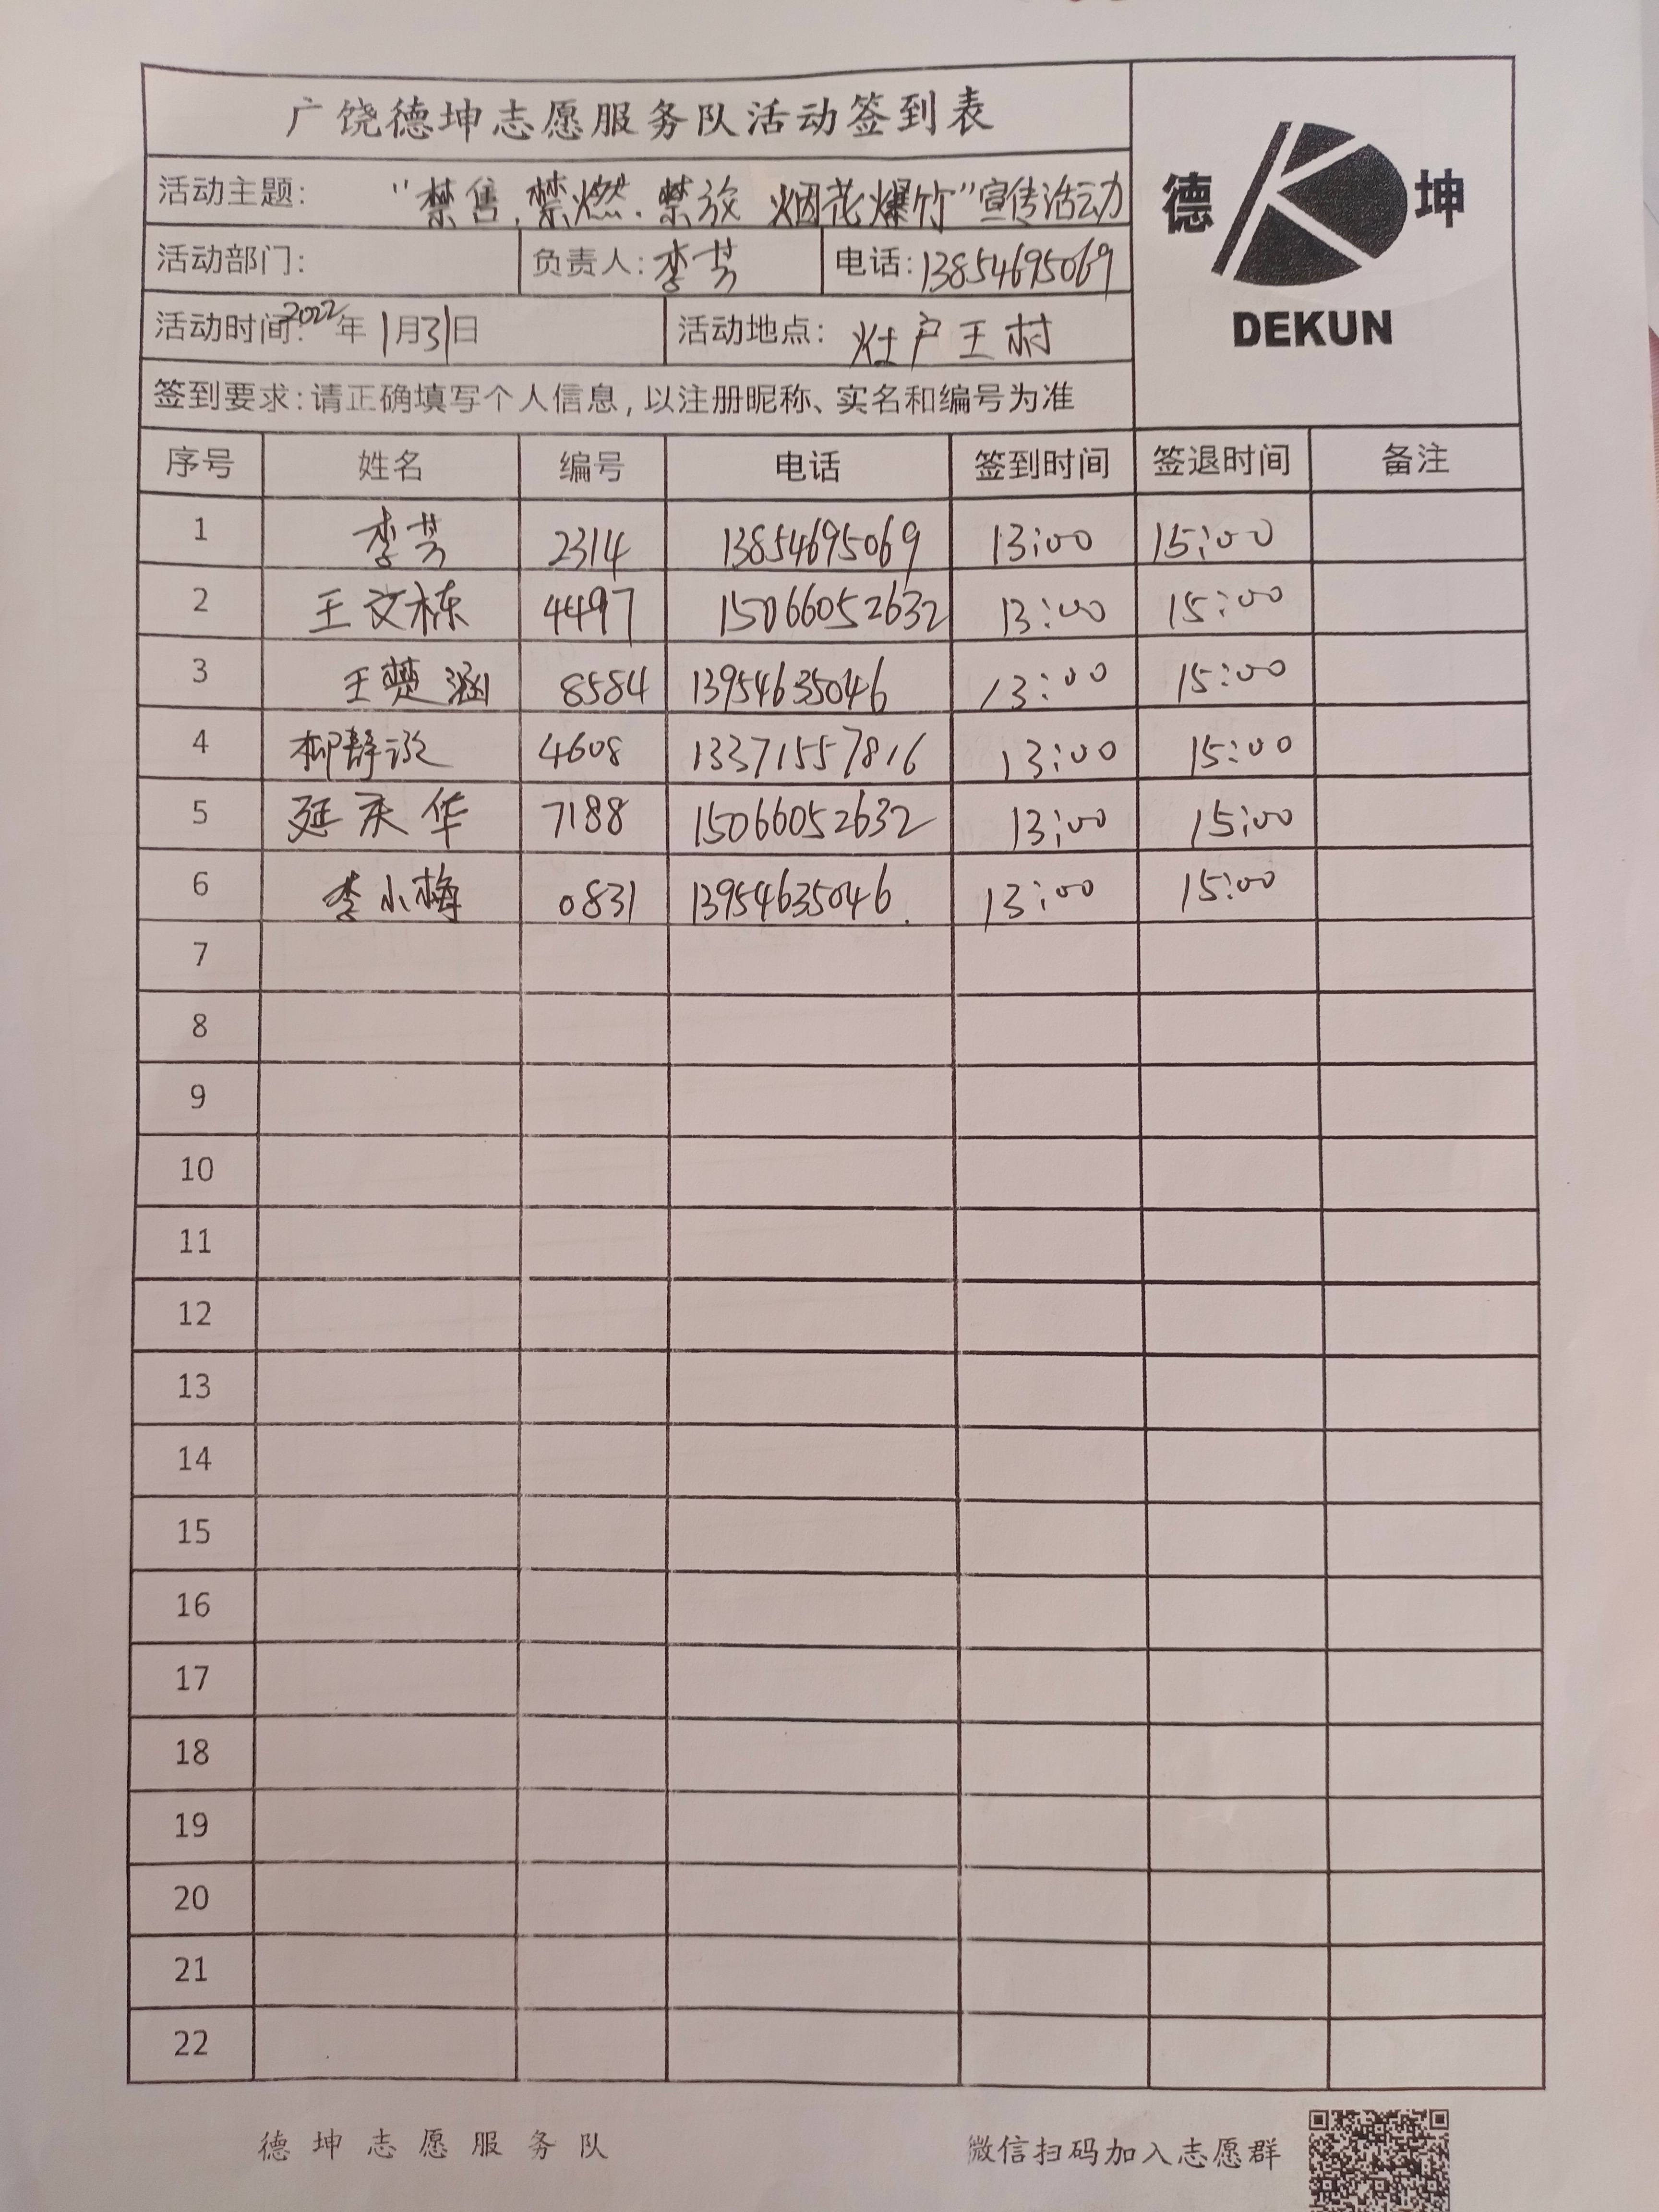 广饶德坤志愿服务队活动签到表
德 坤
DEKUN
活动主题: "禁售.禁燃.禁放 烟花爆竹"宣传活动
活动部门: 负责人: 李芳 电话: 13854695069
活动时间: 2022年1月31日 活动地点: 灶户王村
签到要求: 请正确填写个人信息, 以注册昵称、实名和编号为准
序号 姓名 编号 电话 签到时间 签退时间 备注
1 李芳 2314 13854695069 13:00 15:00
2 王文栋 4497 15066052632 13:00 15:00
3 王楚涵 8584 13954635046 13:00 15:00
4 柳静 4608 13371557816 13:00 15:00
5 延庆华 7188 15066052632 13:00 15:00
6 李小梅 0831 13954635046 13:00 15:00
7
8
9
10
11
12
13
14
15
16
17
18
19
20
21
22
德坤志愿服务队 微信扫码加入志愿群